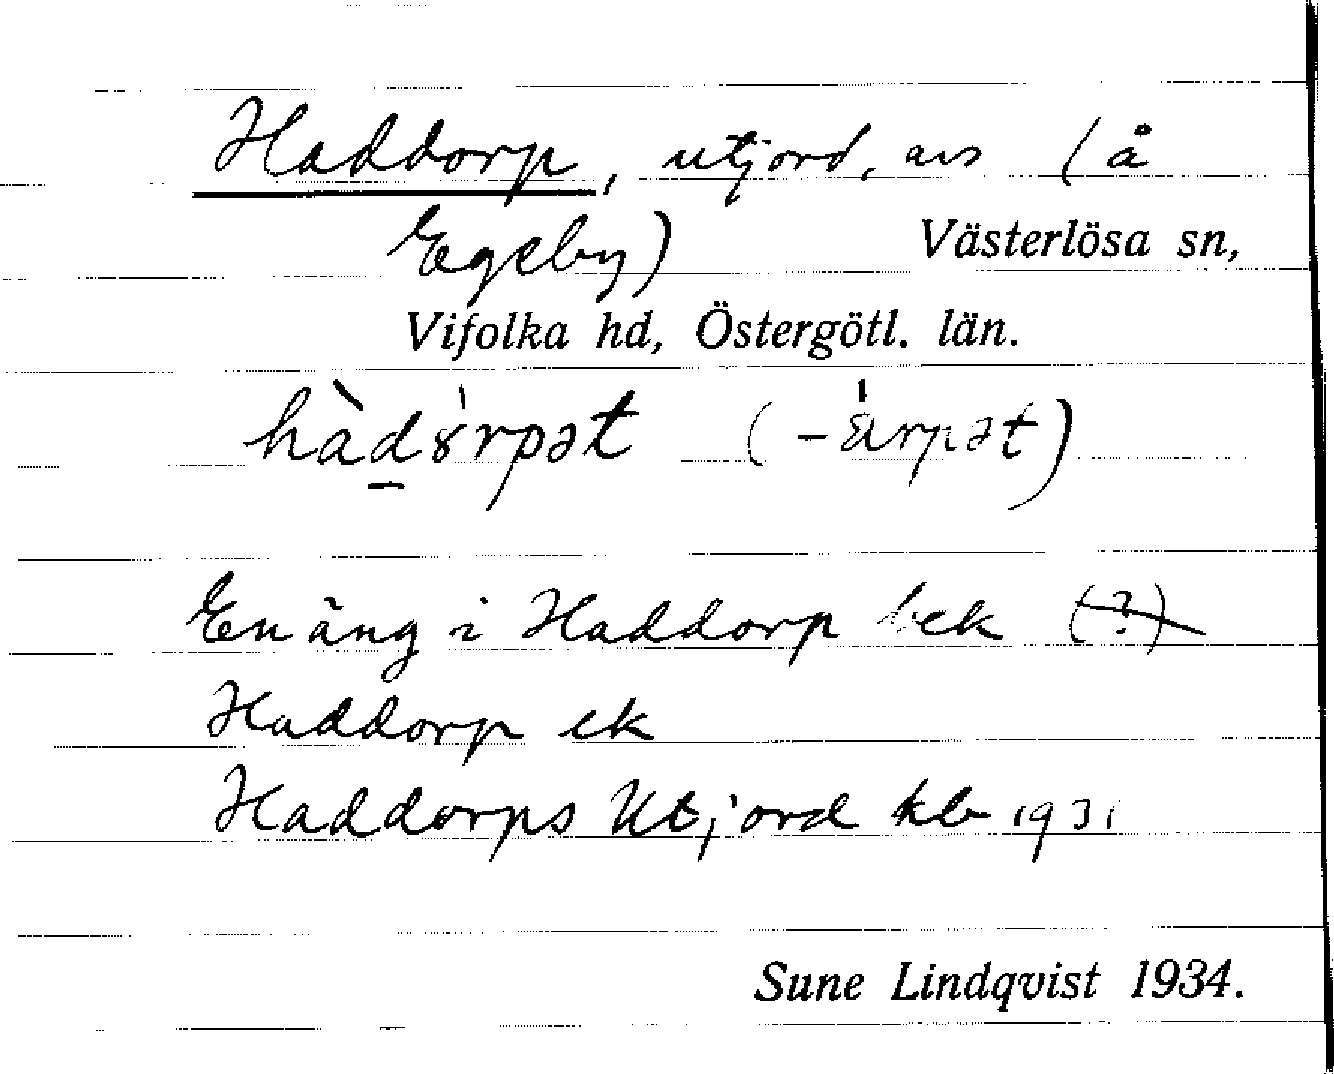 Haddorp, utjord, avs (å
Egeby) Västerlösa sn,
Vifolka hd, Östergötl. län.
hàdɤ́rpət (-árpət)
En äng i Haddorp bek (?)
Haddorp ek
Haddorps Utjord kb 1931
Sune Lindqvist 1934.